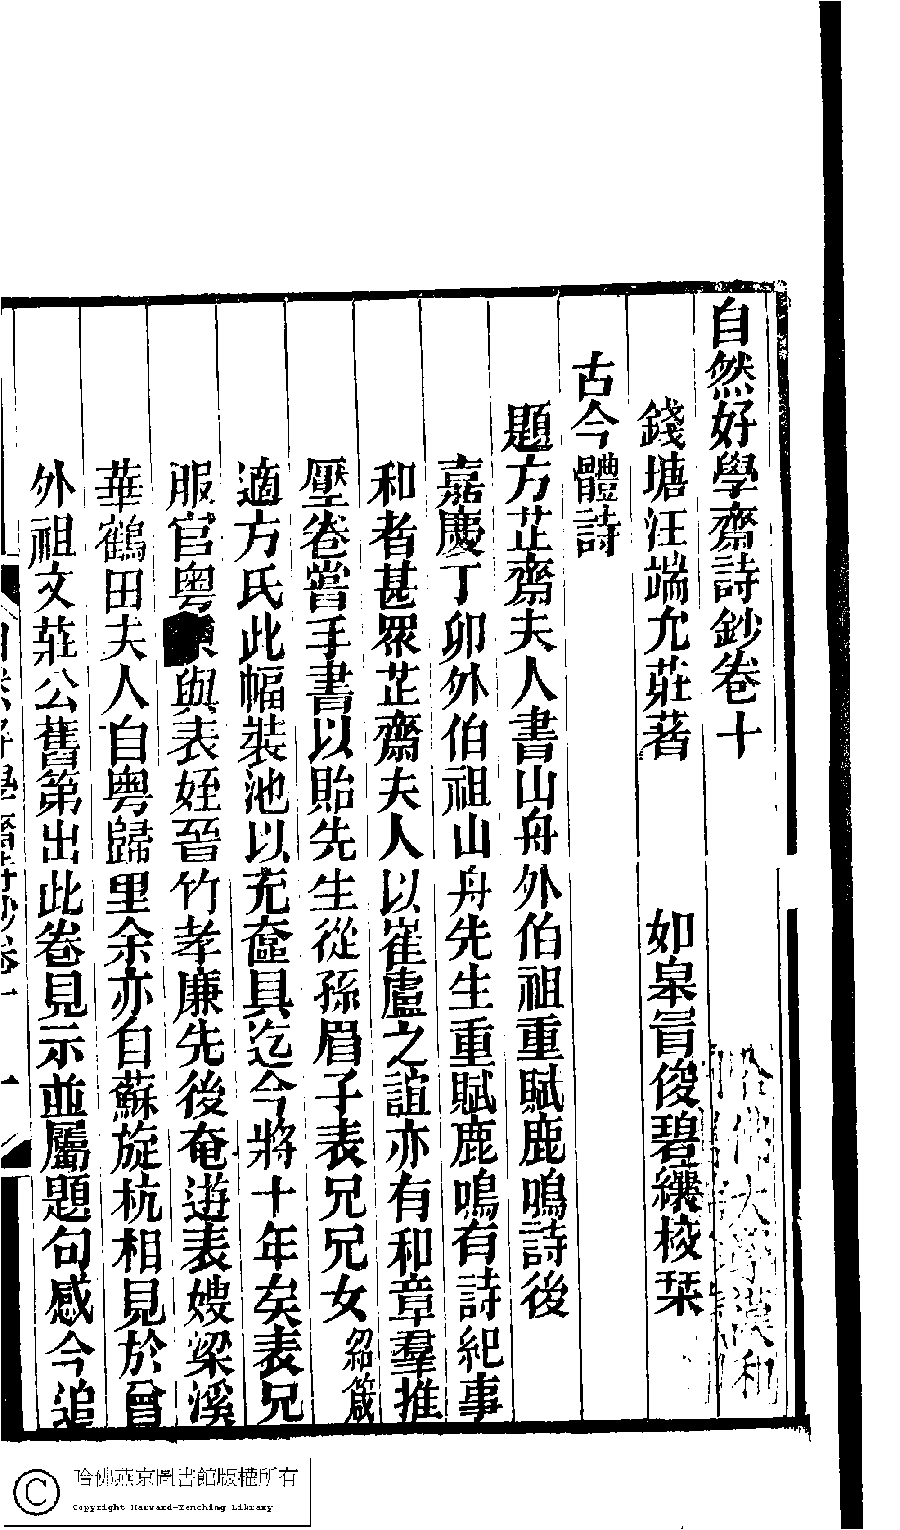 自然好學齋詩鈔卷十
錢塘汪端允莊著 如皋冒俊碧纕校栞
古今體詩
題方芷齋夫人書山舟外伯祖重賦鹿鳴詩後
嘉慶丁卯外伯祖山舟先生重賦鹿鳴有詩紀事
和者甚眾芷齋夫人以崔盧之誼亦有和章羣推
壓卷嘗手書以貽先生從孫眉子表兄兄女紹箴
適方氏此幅裝池以充奩具迄今將十年矣表兄
服官粵與表姪晉竹孝廉先後奄逝表嫂梁溪
華鶴田夫人自粵歸里余亦自蘇旋杭相見於曾
外祖文莊公舊第出此卷見示並屬題句感今追
自然好學齋詩鈔卷十 一
哈佛大學漢和
哈佛燕京圖書館版權所有
Copyright Harvard-Yenching Library